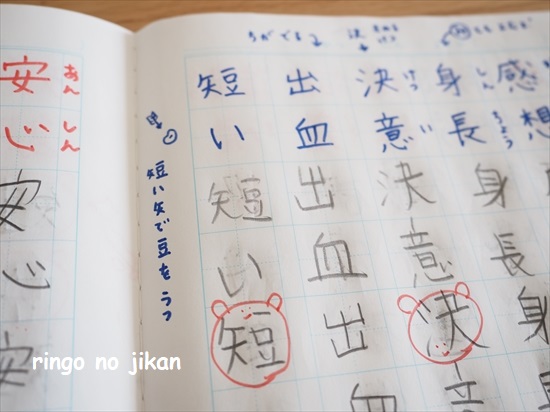 感想
しんちょう
身長
身長
身
けつい
決意
決意
決
ちがでる
出血
出血
出
短い
短い
短
短い矢で豆をうつ
あんしん
安心
安心
安
ringo no jikan